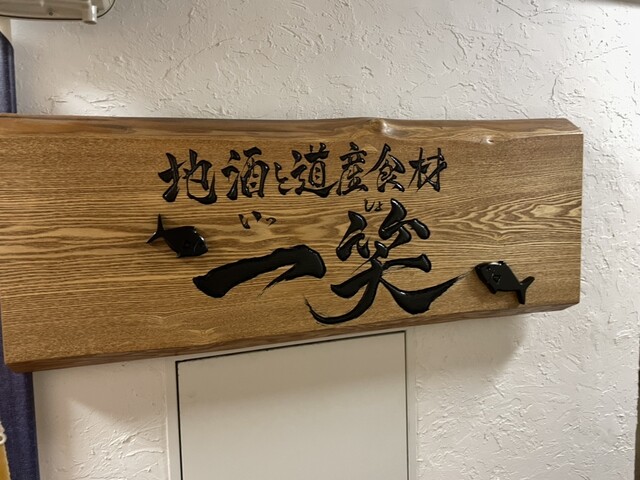 地酒と道産食材
いっしょ
一笑